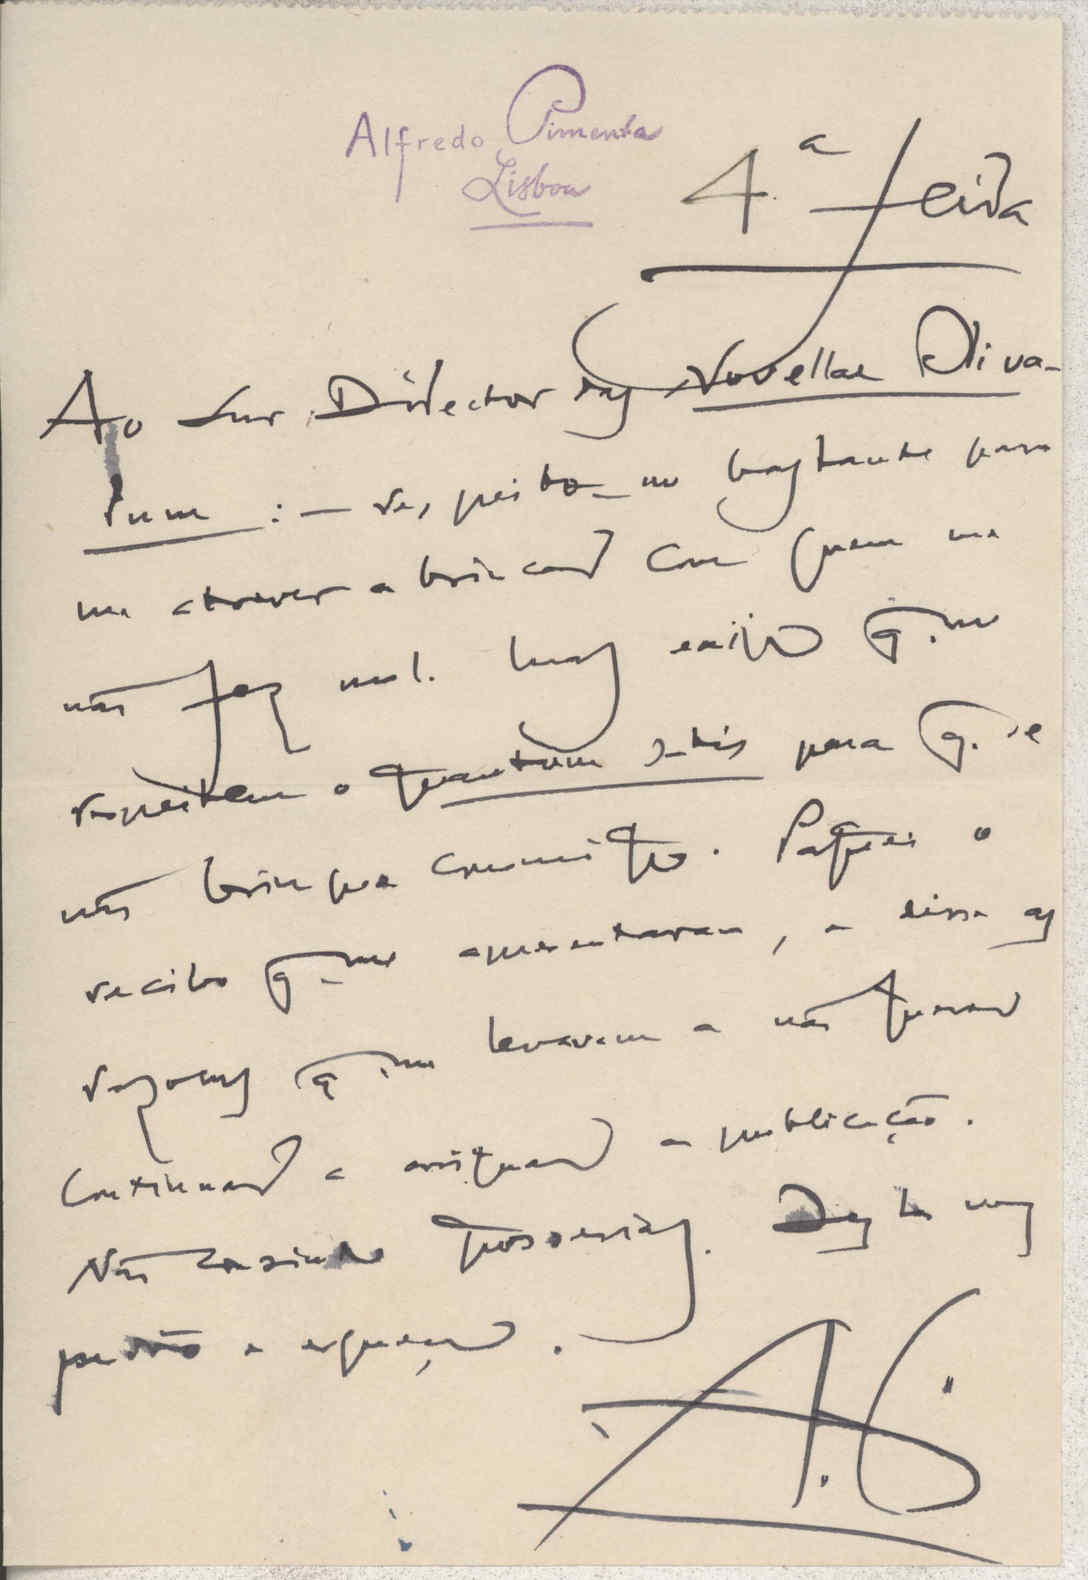 Alfredo Pimenta
Lisboa
4.ª feira
Ao Snr. Director das Novellae Oliva-
rum : — respeito-me bastante para
me atrever a brincar com quem me
não fez mal. Mas exijo q. me
respeitem o quantum satis para q. se
não brinque commigo. Paguei o
recibo q. me apresentaram, e disse as
razoens q. me levavam a não querer
continuar a assignar a publicação.
Não grosserias. Desta vez
perdôo e esqueço.
A. P.